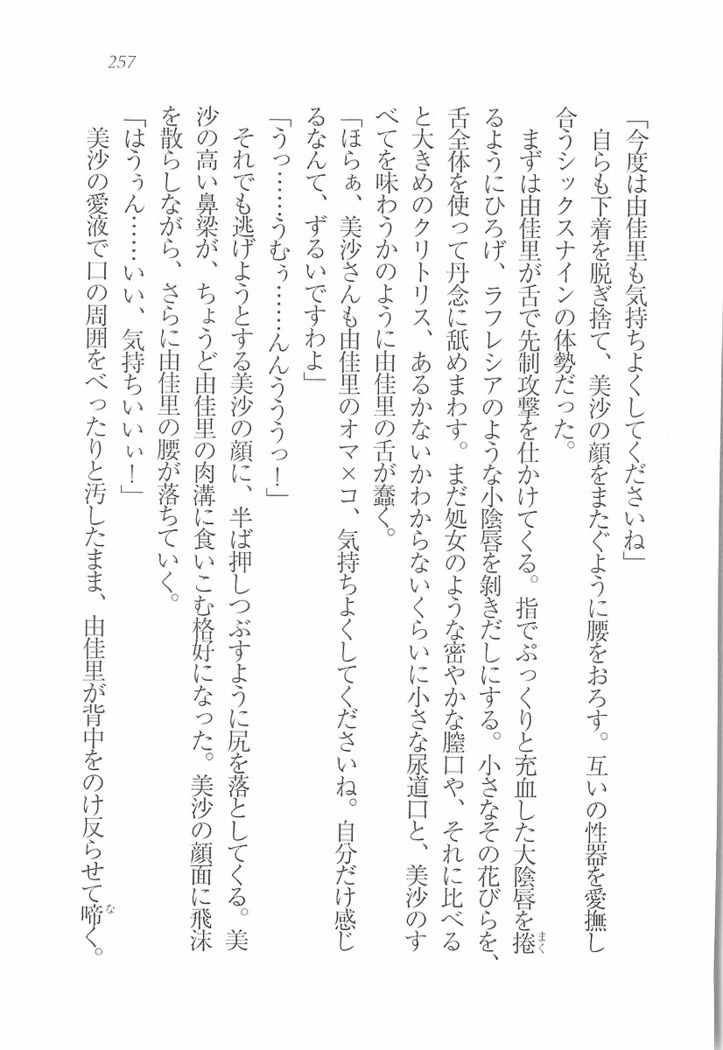 257
「今度は由佳里も気持ちよくしてくださいね」
自らも下着を脱ぎ捨て、美沙の顔をまたぐように腰をおろす。互いの性器を愛撫し
合うシックスナインの体勢だった。
まずは由佳里が舌で先制攻撃を仕かけてくる。指でぷっくりと充血した大陰唇を捲
るようにひろげ、ラフレシアのような小陰唇を剝きだしにする。小さなその花びらを、
舌全体を使って丹念に舐めまわす。まだ処女のような密やかな膣口や、それに比べる
と大きめのクリトリス、あるかないかわからないくらいに小さな尿道口と、美沙のす
べてを味わうかのように由佳里の舌が蠢く。
「ほらぁ、美沙さんも由佳里のオマ×コ、気持ちよくしてくださいね。自分だけ感じ
るなんて、ずるいですわよ」
「うっ……うむぅ……んんううっ！」
それでも逃げようとする美沙の顔に、半ば押しつぶすように尻を落としてくる。美
沙の高い鼻梁が、ちょうど由佳里の肉溝に食いこむ格好になった。美沙の顔面に飛沫
を散らしながら、さらに由佳里の腰が落ちていく。
「はうぅん……いい、気持ちいいぃ！」
美沙の愛液で口の周囲をべったりと汚したまま、由佳里が背中をのけ反らせて啼く。